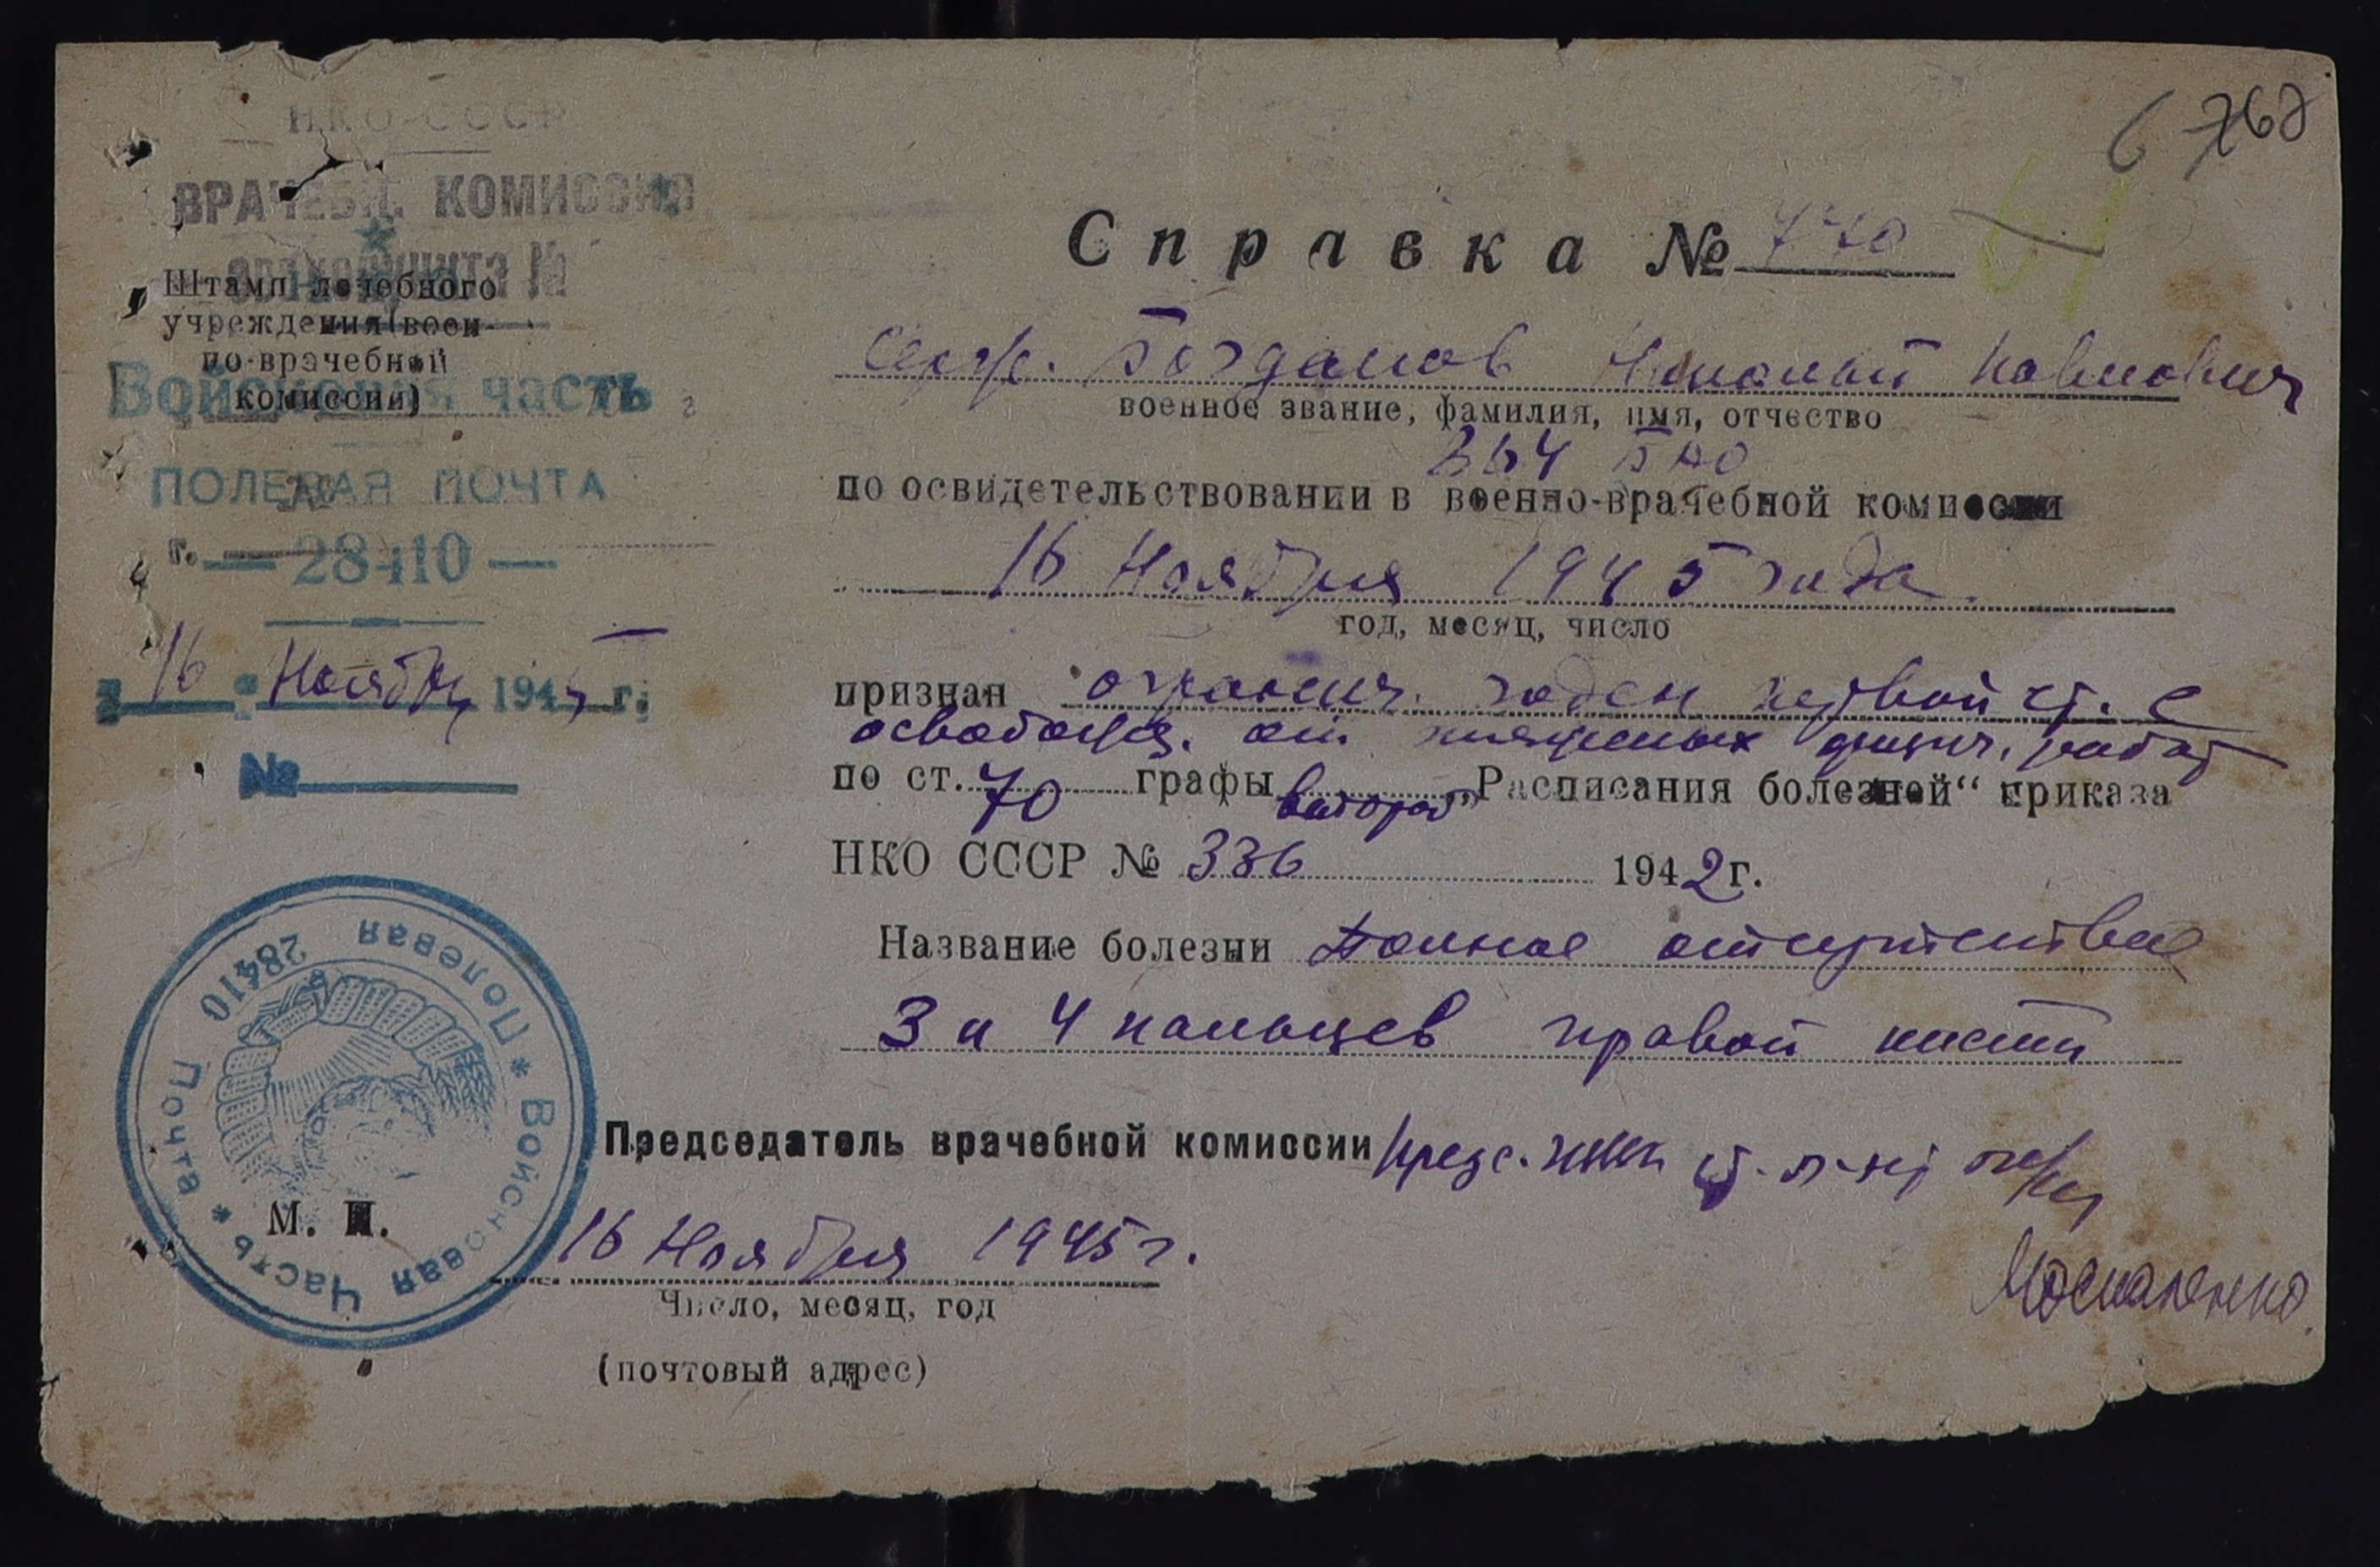 НКО-СССР
ВРАЧЕБН. КОМИССИЯ
Штамп лечебного
учреждения (воен-
но-врачебной
комиссии)
Войсковая часть
ПОЛЕВАЯ ПОЧТА
№
г. — 28410 —
„16“ Ноября 1945 г.
№
6 768
61
Справка №
Серж. Богданов Николай Павлович
военное звание, фамилия, имя, отчество
364 БАО
по освидетельствовании в военно-врачебной комиссии
16 Ноября 1945 года
год, месяц, число
признан огранич. годен первой ст. с
освобожд. от тяжелых физич. работ
по ст. 70 графы второй „Расписания болезней“ приказа
НКО СССР № 336 1942 г.
Название болезни Полное отсутствие
3 и 4 пальцев правой кисти
Председатель врачебной комиссии
М. П.
16 Ноября 1945 г.
Число, месяц, год
Москаленко
(почтовый адрес)
* Войсковая Часть * Полевая Почта 28410